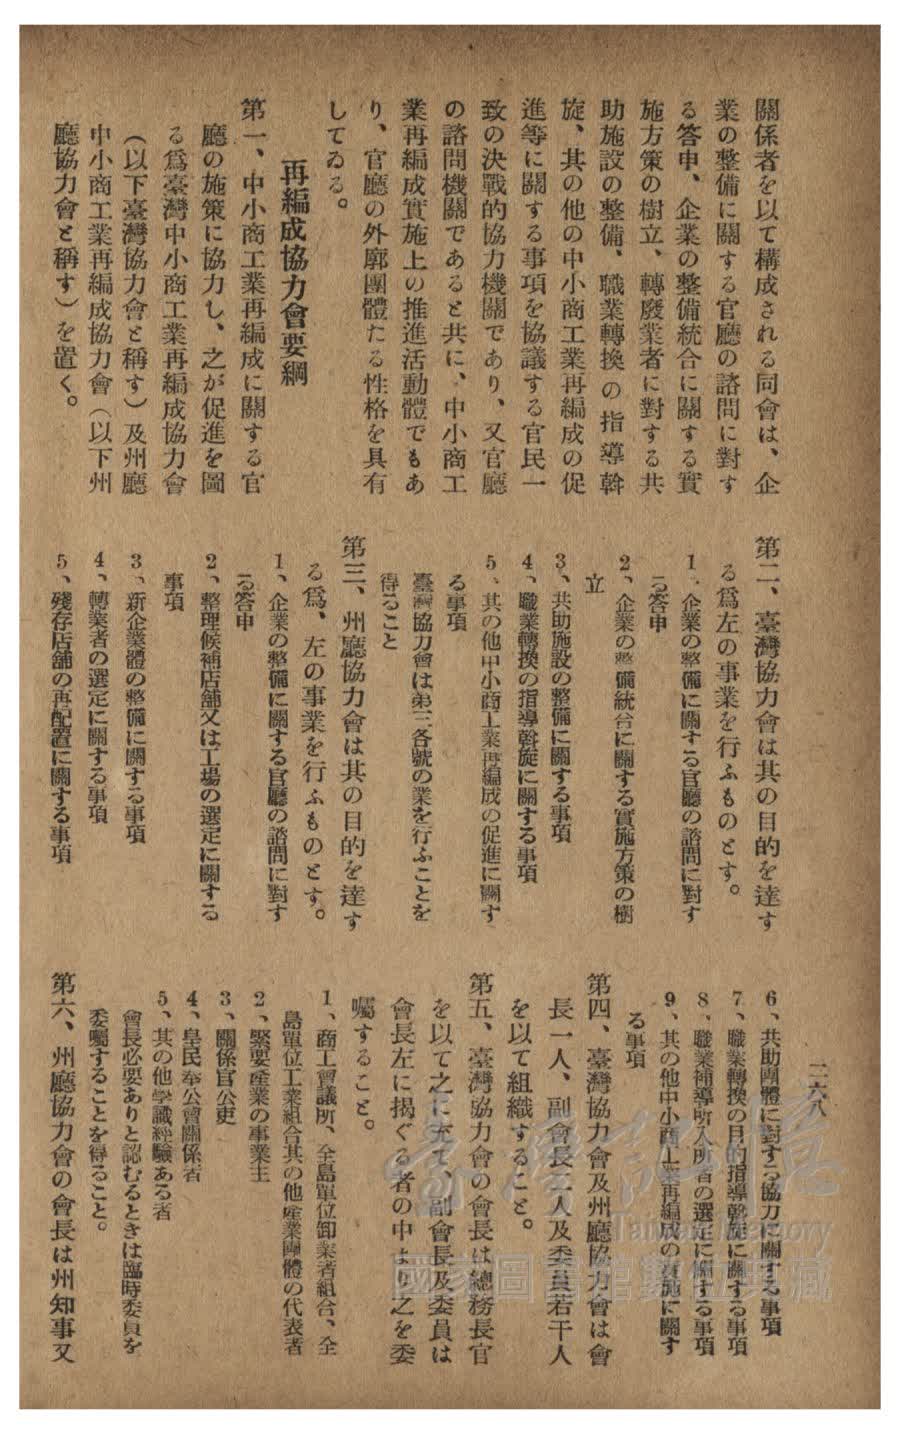 關係者を以て構成される同會は、企
業の整備に關する官廳の諮問に對す
る答申、企業の整備統合に關する實
施方策の樹立、轉廢業者に對する共
助施設の整備、職業轉換の指導斡
旋、其の他の中小商工業再編成の促
進等に關する事項を協議する官民一
致の決戰的協力機關であり、又官廳
の諮問機關であると共に、中小商工
業再編成實施上の推進活動體でもあ
り、官廳の外廓團體たる性格を具有
してゐる。
再編成協力會要綱
第一、中小商工業再編成に關する官
廳の施策に協力し、之が促進を圖
る爲臺灣中小商工業再編成協力會
（以下臺灣協力會と稱す）及州廳
中小商工業再編成協力會（以下州
廳協力會と稱す）を置く。
第二、臺灣協力會は其の目的を達す
る爲左の事業を行ふものとす。
1、企業の整備に關する官廳の諮問に對す
る答申
2、企業の整備統合に關する實施方策の樹
立
3、共助施設の整備に關する事項
4、職業轉換の指導斡旋に關する事項
5、其の他中小商工業再編成の促進に關す
る事項
臺灣協力會は第三各號の業を行ふことを
得ること
第三、州廳協力會は其の目的を達す
る爲、左の事業を行ふものとす。
1、企業の整備に關する官廳の諮問に對す
る答申
2、整理候補店舖又は工場の選定に關する
事項
3、新企業體の整備に關する事項
4、轉業者の選定に關する事項
5、殘存店舖の再配置に關する事項
6、共助團體に對する協力に關する事項
7、職業轉換の目的指導斡旋に關する事項
8、職業補導所入所者の選定に關する事項
9、其の他中小商工業再編成の實施に關す
る事項
第四、臺灣協力會及州廳協力會は會
長一人、副會長二人及委員若干人
を以て組織すること。
第五、臺灣協力會の會長は總務長官
を以て之に充て、副會長及委員は
會長左に揭ぐる者の中より之を委
囑すること。
1、商工會議所、全島單位卸業者組合、全
島單位工業組合其の他産業團體の代表者
2、緊要産業の事業主
3、關係官公吏
4、皇民奉公會關係者
5、其の他學識經驗ある者
會長必要ありと認むるときは臨時委員を
委囑することを得ること。
第六、州廳協力會の會長は州知事又
二六八
臺灣記憶
Taiwan Memory
國家圖書館數位典藏